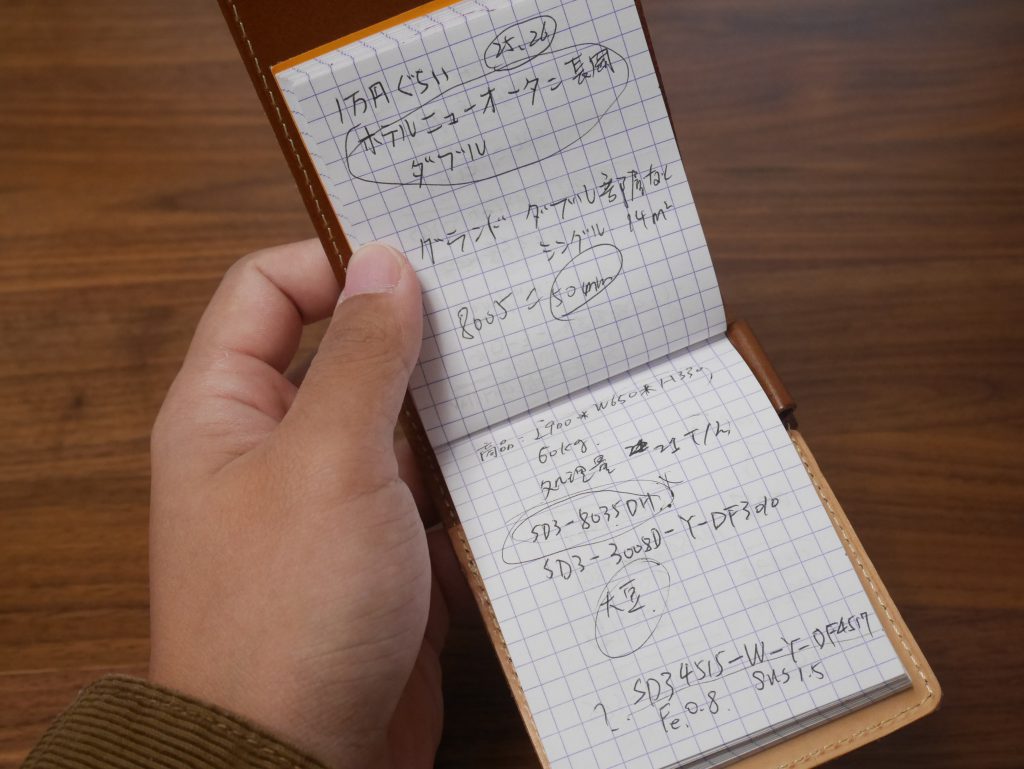 25、26
1万円ぐらい
ホテルニューオータニ長岡
ダブル
グランド ダブル部屋なし
シングル 14m²
8005 = 50mm
商品 - L900*W650*H330,
60kg.
処理量 21T/h
SD3-8035DH.
SD3-3008D-Y-DF3010
大豆.
SD34515-W-Y-DF4517
2. Fe.0.8. SUS 1.5